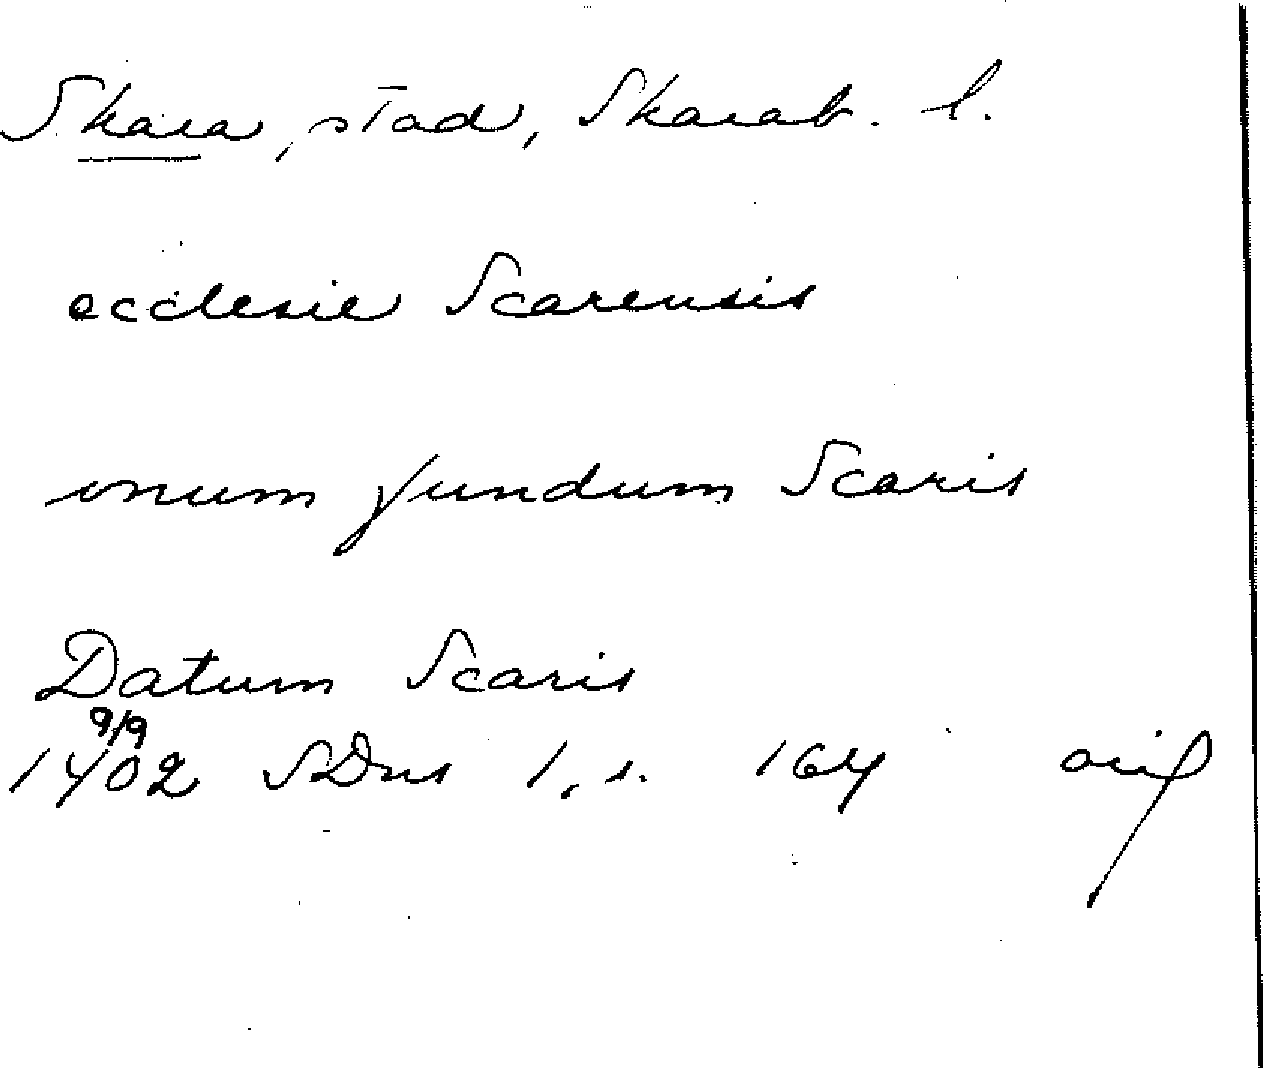 Skara, stad, Skarab. l.
ecclesie Scarensis
vnum fundum Scaris
Datum Scaris
9/9
1402 SDns 1, s. 164 orig